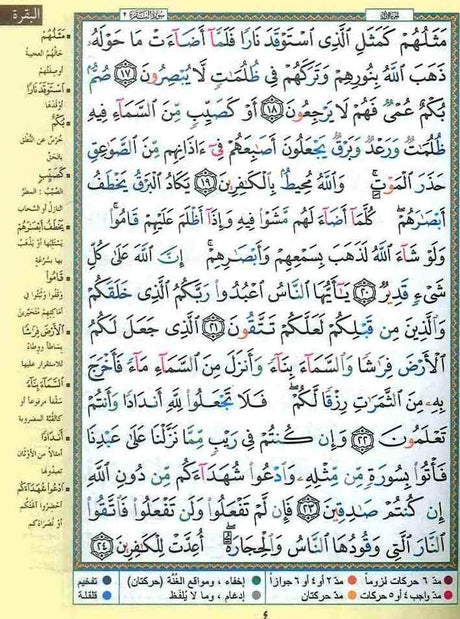 الجزء الأول
سُورَةُ البَقَرَةِ ٢
البقرة
مَثَلُهُمْ كَمَثَلِ ٱلَّذِى ٱسْتَوْقَدَ نَارًا فَلَمَّآ أَضَآءَتْ مَا حَوْلَهُۥ
ذَهَبَ ٱللَّهُ بِنُورِهِمْ وَتَرَكَهُمْ فِى ظُلُمَٰتٍ لَّا يُبْصِرُونَ ١٧ صُمٌّۢ
بُكْمٌ عُمْىٌ فَهُمْ لَا يَرْجِعُونَ ١٨ أَوْ كَصَيِّبٍ مِّنَ ٱلسَّمَآءِ فِيهِ
ظُلُمَٰتٌ وَرَعْدٌ وَبَرْقٌ يَجْعَلُونَ أَصَٰبِعَهُمْ فِىٓ ءَاذَانِهِم مِّنَ ٱلصَّوَٰعِقِ
حَذَرَ ٱلْمَوْتِ ۚ وَٱللَّهُ مُحِيطٌۢ بِٱلْكَٰفِرِينَ ١٩ يَكَادُ ٱلْبَرْقُ يَخْطَفُ
أَبْصَٰرَهُمْ ۖ كُلَّمَآ أَضَآءَ لَهُم مَّشَوْا۟ فِيهِ وَإِذَآ أَظْلَمَ عَلَيْهِمْ قَامُوا۟ ۚ
وَلَوْ شَآءَ ٱللَّهُ لَذَهَبَ بِسَمْعِهِمْ وَأَبْصَٰرِهِمْ ۚ إِنَّ ٱللَّهَ عَلَىٰ كُلِّ
شَىْءٍ قَدِيرٌ ٢٠ يَٰٓأَيُّهَا ٱلنَّاسُ ٱعْبُدُوا۟ رَبَّكُمُ ٱلَّذِى خَلَقَكُمْ
وَٱلَّذِينَ مِن قَبْلِكُمْ لَعَلَّكُمْ تَتَّقُونَ ٢١ ٱلَّذِى جَعَلَ لَكُمُ
ٱلْأَرْضَ فِرَٰشًا وَٱلسَّمَآءَ بِنَآءً وَأَنزَلَ مِنَ ٱلسَّمَآءِ مَآءً فَأَخْرَجَ
بِهِۦ مِنَ ٱلثَّمَرَٰتِ رِزْقًا لَّكُمْ ۖ فَلَا تَجْعَلُوا۟ لِلَّهِ أَندَادًا وَأَنتُمْ
تَعْلَمُونَ ٢٢ وَإِن كُنتُمْ فِى رَيْبٍ مِّمَّا نَزَّلْنَا عَلَىٰ عَبْدِنَا
فَأْتُوا۟ بِسُورَةٍ مِّن مِّثْلِهِۦ وَٱدْعُوا۟ شُهَدَآءَكُم مِّن دُونِ ٱللَّهِ
إِن كُنتُمْ صَٰدِقِينَ ٢٣ فَإِن لَّمْ تَفْعَلُوا۟ وَلَن تَفْعَلُوا۟ فَٱتَّقُوا۟
ٱلنَّارَ ٱلَّتِى وَقُودُهَا ٱلنَّاسُ وَٱلْحِجَارَةُ ۖ أُعِدَّتْ لِلْكَٰفِرِينَ ٢٤
مَثَلُهُمْ
حالُهُمُ العجيبة
أو صفتُهُمْ
ٱسْتَوْقَدَ نَارًا
أوْقَدَها
بُكْمٌ
خُرْسٌ عن النُّطْقِ
بالحَقِّ
كَصَيِّبٍ
الصَّيِّبُ : المَطَرُ
النازل أو السَّحاب
يَخْطَفُ أَبْصَٰرَهُمْ
يَسْتَلِبُها أو يَذْهَبُ
بها بسُرْعَةٍ
قَامُوا۟
وَقَفُوا وثَبَتُوا في
أماكِنِهِمْ مُتَحَيِّرين
ٱلْأَرْضَ فِرَٰشًا
بِساطًا ووِطاءً
للاستقرار عليها
ٱلسَّمَآءَ بِنَآءً
سَقْفًا مرفوعًا أو
كالقُبَّة المضروبة
أَندَادًا
أمثالًا من الأوْثان
تعبدُونها
ٱدْعُوا۟ شُهَدَآءَكُم
أحْضِروا آلهَتَكُمْ
أو نُصَراءَكُمْ
مدّ ٦ حركات لزوماً مدّ ٢ أو ٤ أو ٦ جوازاً إخفاء ، ومواقع الغُنَّة (حركتان) تفخيم
مدّ واجب ٤ أو ٥ حركات مدّ حركتان إدغام ، وما لا يُلفَظ قلقلة
٤